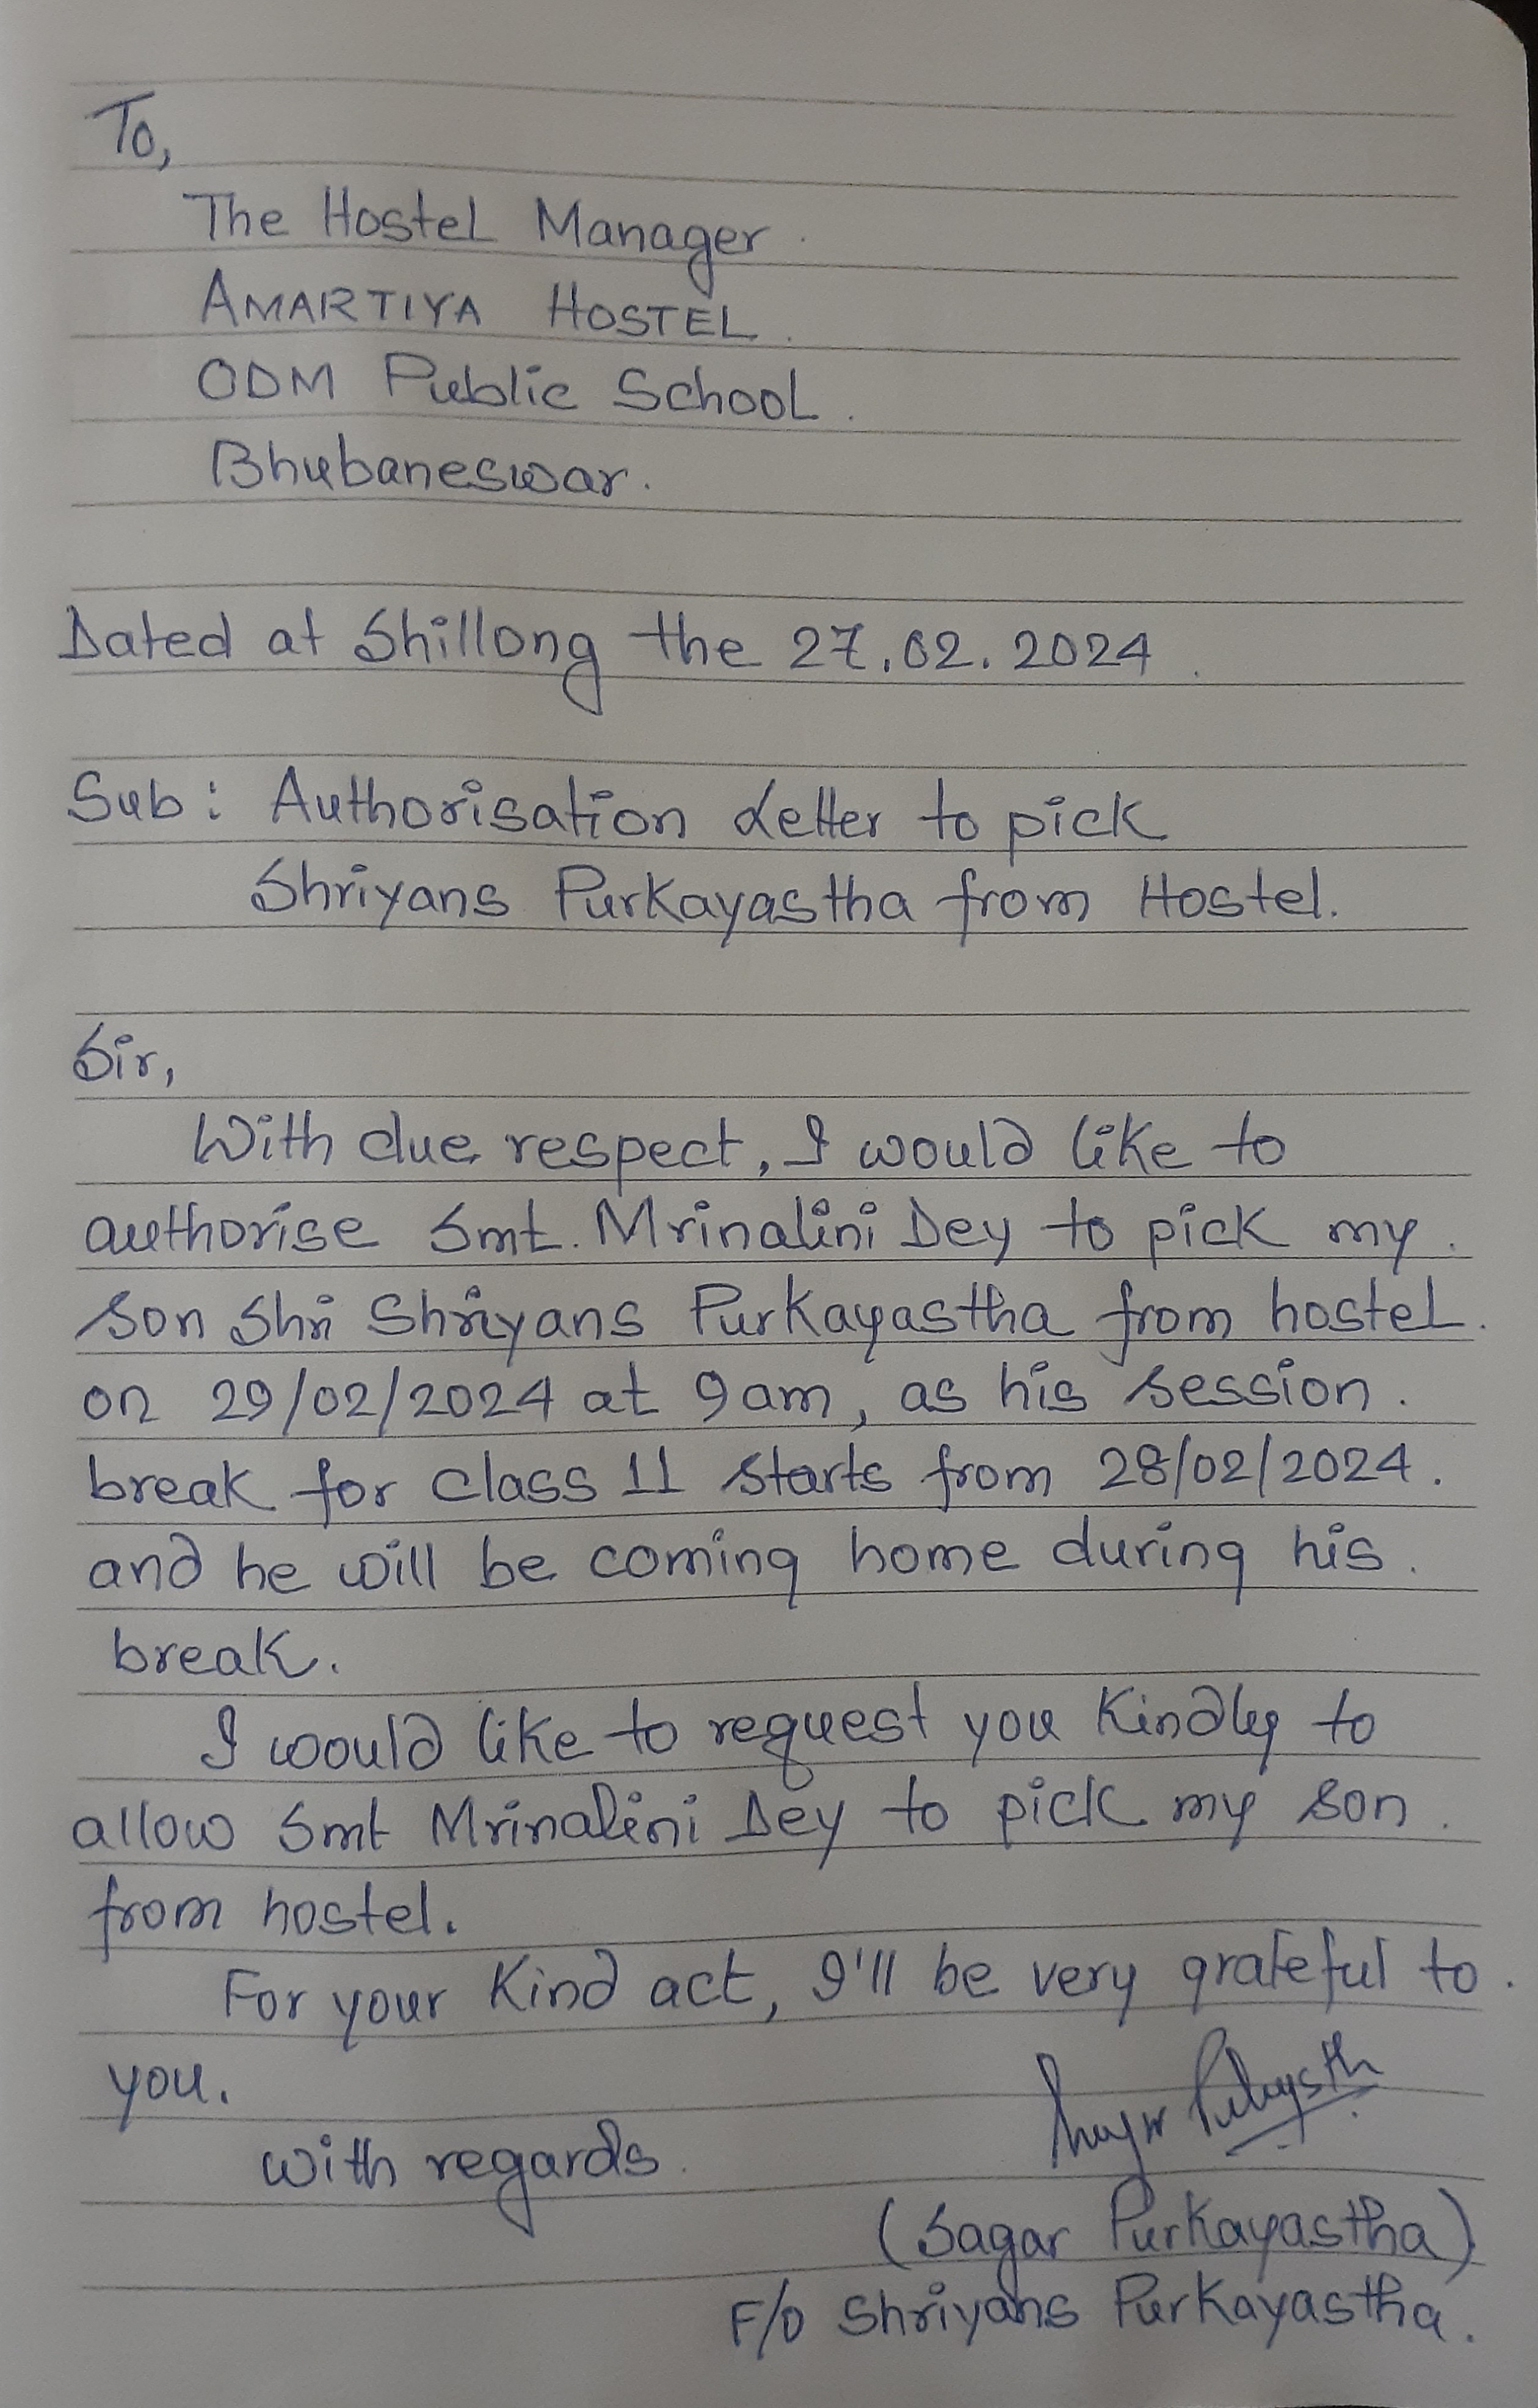 To,
The Hostel Manager.
AMARTIYA HOSTEL.
ODM Public School.
Bhubaneswar.
Dated at Shillong the 27.02.2024.
Sub: Authorisation Letter to pick
Shriyans Purkayastha from Hostel.
Sir,
With due respect, I would like to
authorise Smt. Mrinalini Dey to pick my.
son Shri Shriyans Purkayastha from hostel.
on 29/02/2024 at 9am, as his session.
break for class 11 starts from 28/02/2024.
and he will be coming home during his.
break.
I would like to request you Kindly to
allow Smt Mrinalini Dey to pick my son.
from hostel.
For your Kind act, I'll be very grateful to.
you.
With regards.
(Sagar Purkayastha)
F/O Shriyans Purkayastha.